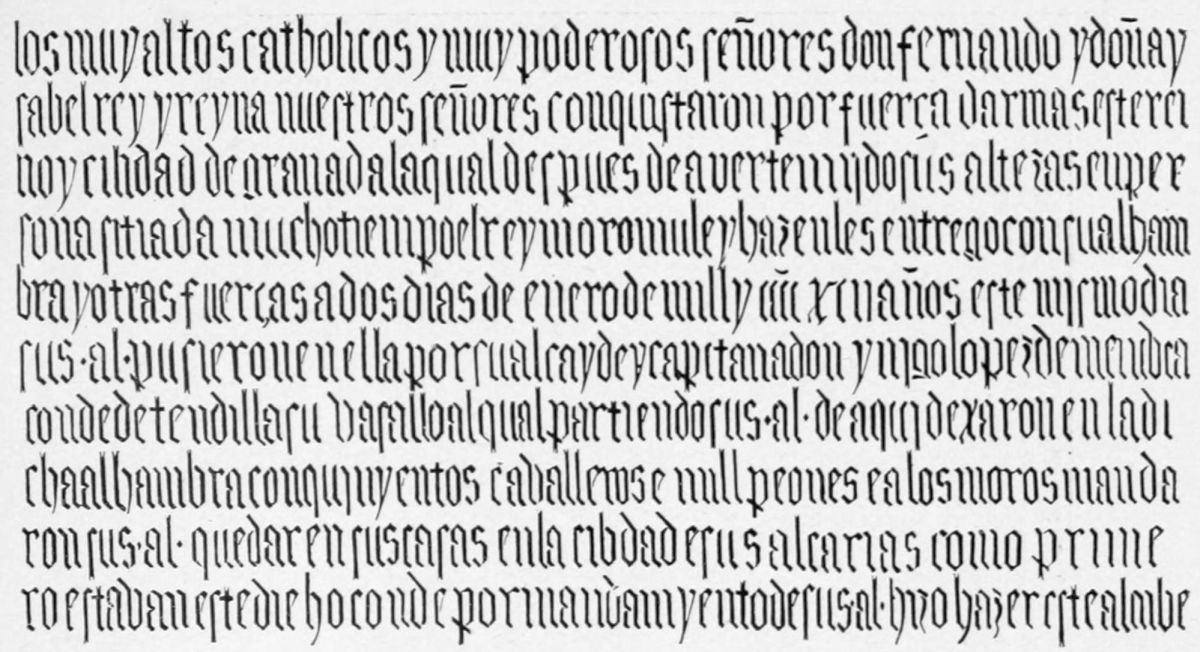 los muy altos catholicos y muy poderosos señores don fernando y doña y
sabel rey y reyna nuestros señores conquistaron por fuerça darmas este rei
no y cibdad de granada la qual despues de aver tenydo sus altezas en per
sona sitiada mucho tiempo el rey moro muley hazen les entrego con su alham
bra y otras fuerças a dos dias de enero de mill y cccc xcii años este mismo dia
sus · al · pusieron en ella por su alcayde y capitan a don yñigo lopez de mendoça
conde de tendilla su vasallo al qual partiendo sus · al · de aqui dexaron en la di
cha alhambra con quinyentos cavalleros e mill peones e a los moros manda
ron sus · al · quedar en sus casas en la cibdad e sus alcarias como prime
ro estavan este dicho conde por mandamyento de sus al · hizo hazer este algibe